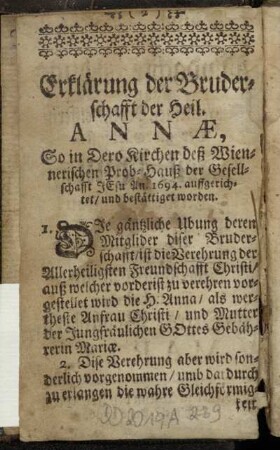 ( 2 )
Erklärung der Bruder-
schafft der Heil.
ANNÆ,
So in Dero Kirchen deß Wien-
nerischen Prob-Hauß der Gesell-
schafft JEsu An. 1694. auffgerich-
tet/ und bestättiget worden.
1. DIe gäntzliche Ubung deren
Mitglider diser Bruder-
schafft/ ist die Verehrung der
Allerheiligsten Freundschafft Christi/
auß welcher vorderist zu verehren vor-
gestellet wird die H. Anna/ als wer-
theste Anfrau Christi/ und Mutter
der Jungfräulichen GOttes Gebäh-
rerin Mariæ.
2. Dise Verehrung aber wird son-
derlich vorgenommen/ umb dardurch
zu erlangen die wahre Gleichförmig-
keit
DD2019A239